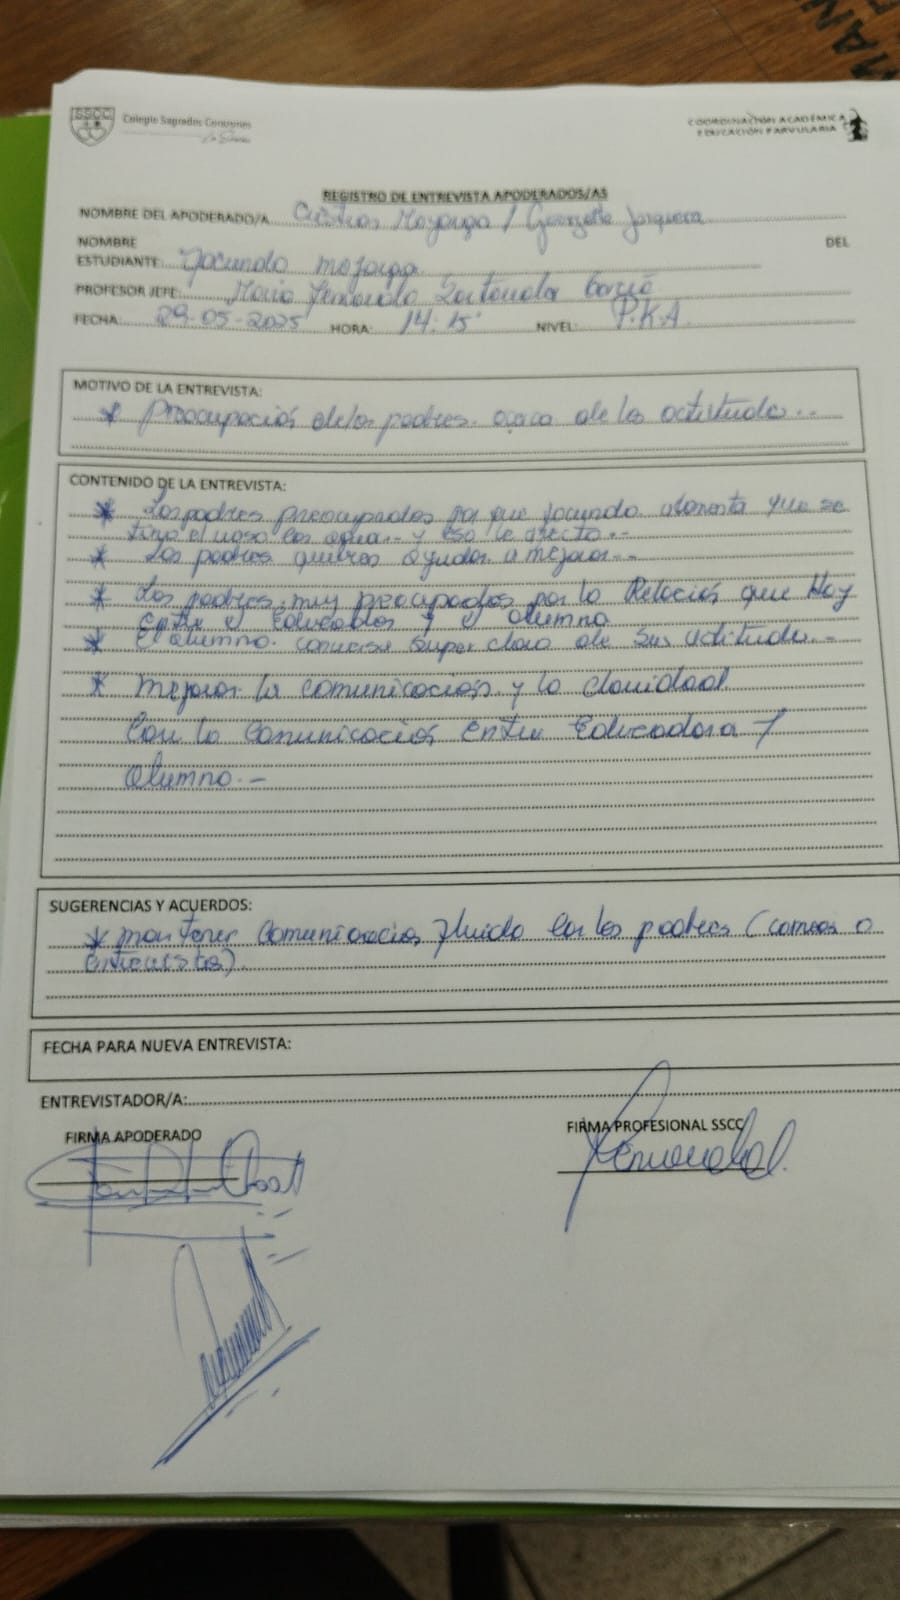 SSCC Colegio Sagrados Corazones
COORDINACIÓN ACADÉMICA
EDUCACIÓN PARVULARIA
REGISTRO DE ENTREVISTA APODERADOS/AS
NOMBRE DEL APODERADO/A Mayorga / Jorquera
NOMBRE DEL
ESTUDIANTE: Facundo mayorga
PROFESOR JEFE: Maria Fernanda
FECHA: 29-05-2025 HORA: 14:15' NIVEL: P.K.A
MOTIVO DE LA ENTREVISTA:
* Preocupación de los padres
CONTENIDO DE LA ENTREVISTA:
* Los padres preocupados por que facundo comenta que se
el vaso con agua y eso le afecto.-
* Los padres quieren ayudar a mejorar.-
* Los padres muy preocupados por la Relación que Hay
Entre y el alumno
* El alumno conversa super claro de sus actitudes.-
* mejorar la comunicación y la claridad
Con la comunicación entre Educadora y
alumno.-
SUGERENCIAS Y ACUERDOS:
* mantener comunicación fluida con los padres (correo o
entrevistas).
FECHA PARA NUEVA ENTREVISTA:
ENTREVISTADOR/A:
FIRMA APODERADO FIRMA PROFESIONAL SSCC